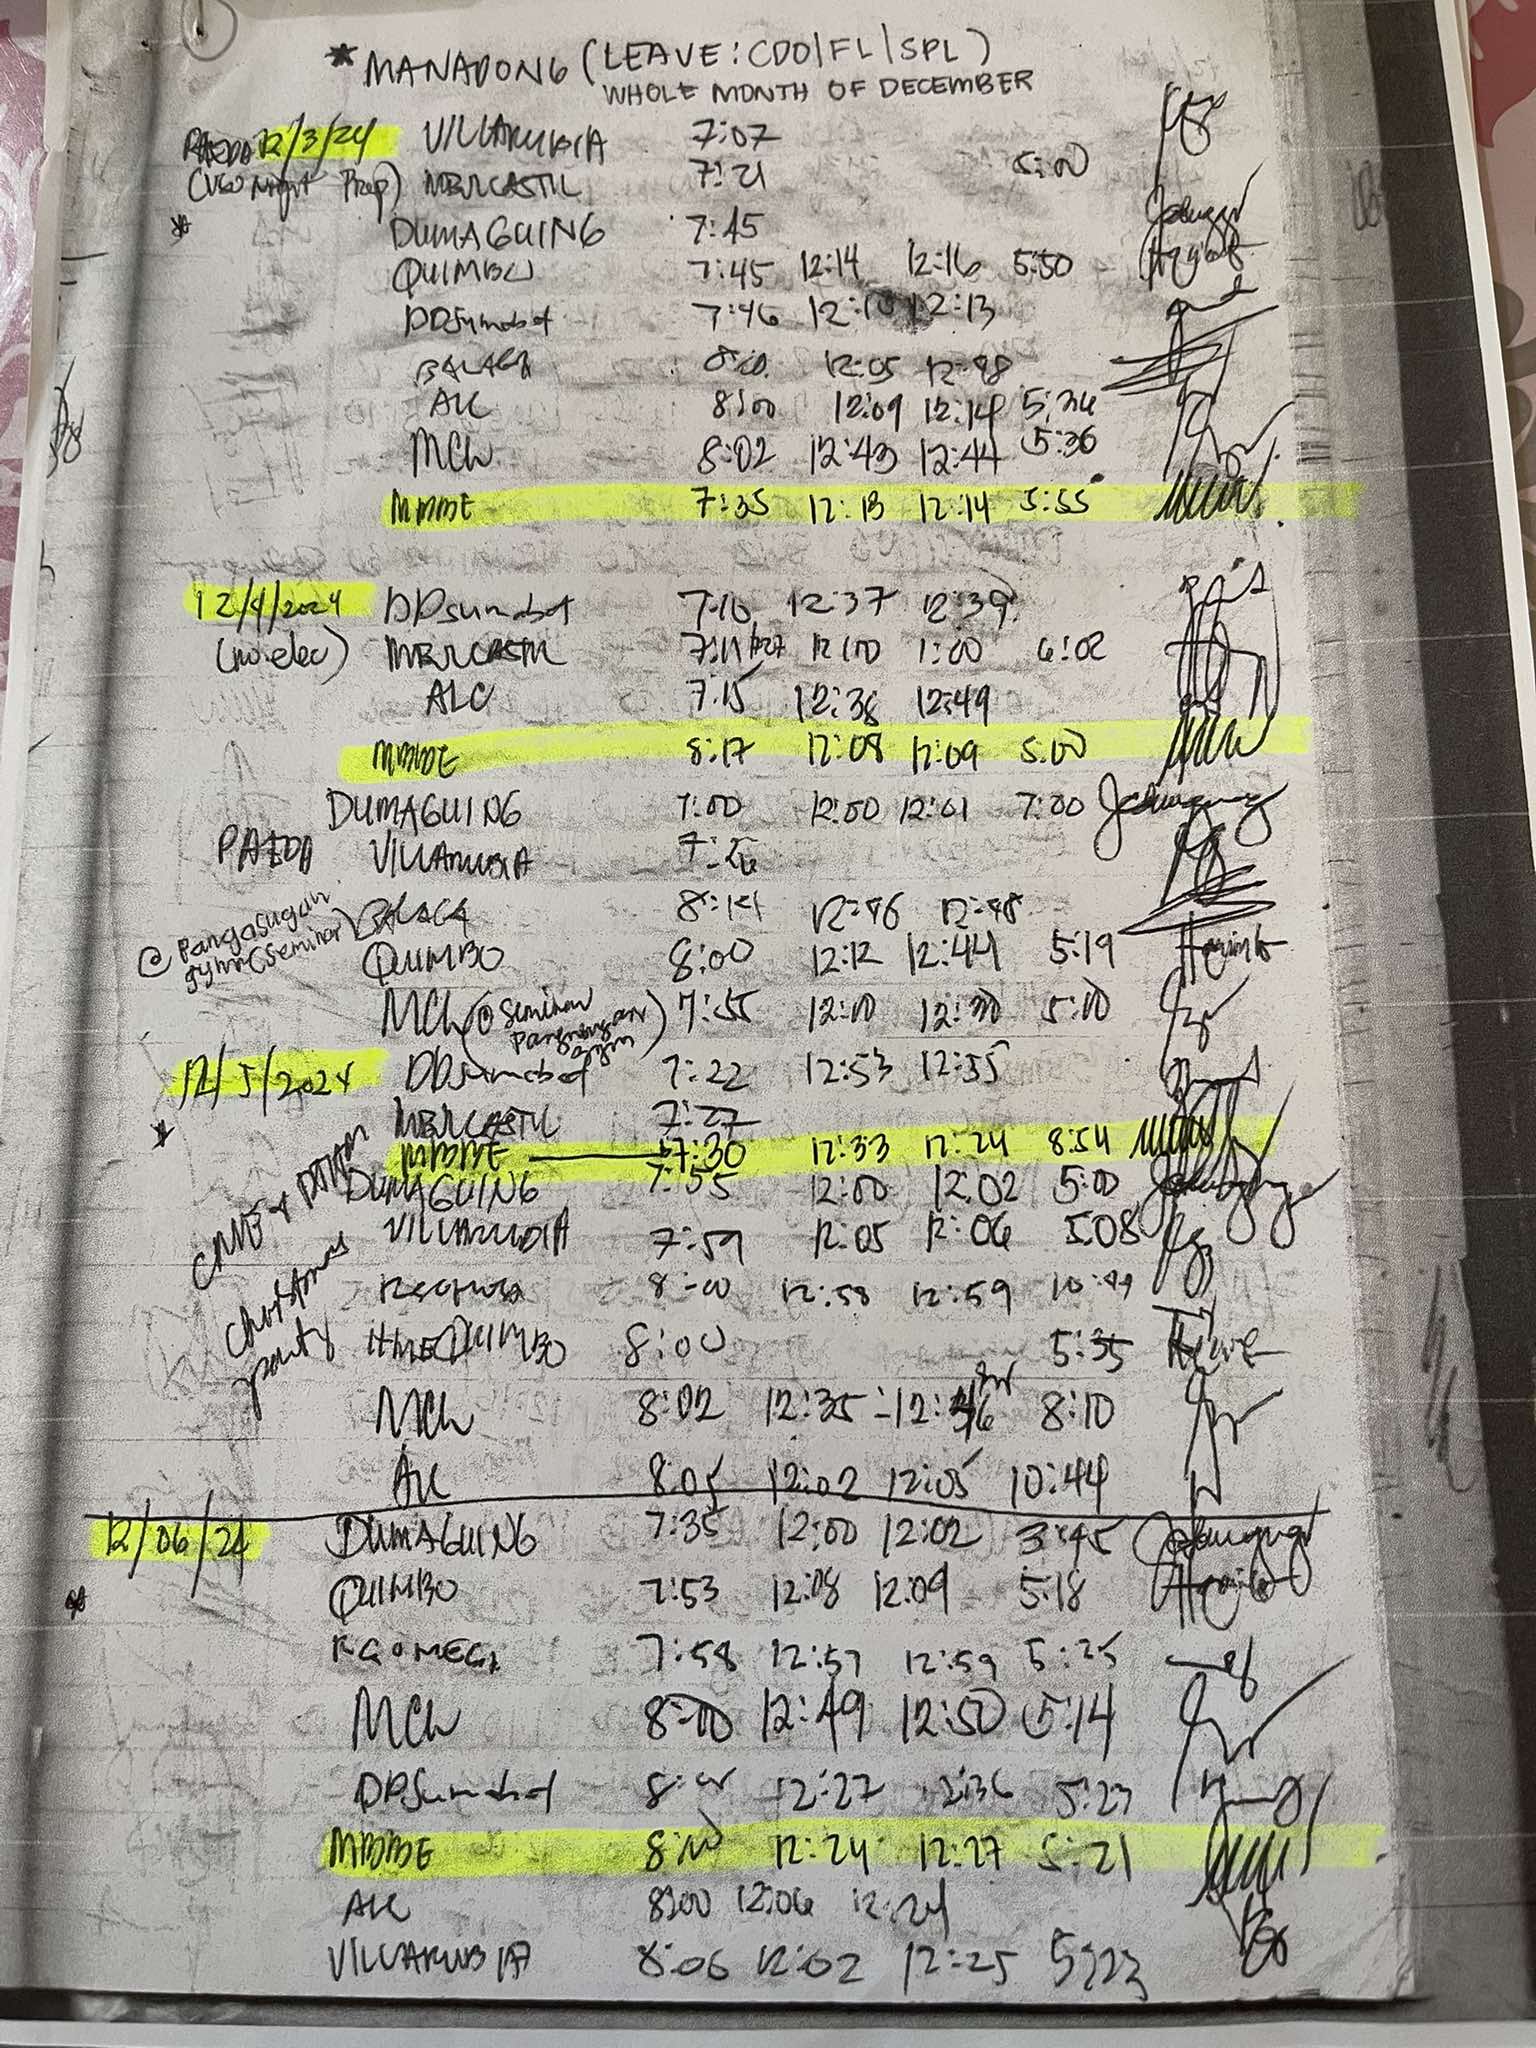 * MANADONG (LEAVE: CDO/FL/SPL)
WHOLE MONTH OF DECEMBER
12/3/24 VILLARUBIA 7:07
MBRCASTIL 7:21 5:00
DUMAGUING 7:45
QUIMBO 7:45 12:14 12:16 5:50
DDSumabat 7:46 12:13
BALAGA 12:05 12:48
ALC 8:00 12:09 12:14 5:36
MCh 8:02 12:43 12:44 5:36
MBBE 7:35 12:13 12:14 5:55
12/4/2024 DDSumabat 7:10 12:37 12:39
(no elec) MBRCASTIL 7:11 12:00 1:00 6:02
ALC 7:15 12:38 12:49
MBBE 8:17 12:08 12:09 5:00
DUMAGUING 7:00 12:00 12:01 7:00
VILLARUBIA 7:26
BALAGA 8:14 12:46 12:48
@ Pangasugan gym (seminar)
QUIMBO 8:00 12:12 12:44 5:19
MCh (@ seminar Pangasugan gym) 7:55 12:00 12:30 5:10
12/5/2024 DDSumabat 7:22 12:53 12:55
* MBRCASTIL 7:27
MBBE 7:30 12:33 12:24 8:54
DUMAGUING 7:55 12:00 12:02 5:00
VILLARUBIA 7:59 12:05 12:06 5:08
Christmas party
8:00 12:58 12:59 10:44
HMEQUIMBO 8:00 5:35
MCh 8:02 12:35 - 12:36 8:10
ALC 8:05 12:02 12:05 10:44
12/06/24 DUMAGUING 7:35 12:00 12:02 3:45
* QUIMBO 7:53 12:08 12:09 5:18
RGOMEGA 7:58 12:57 12:59 5:25
MCh 8:00 12:49 12:50 5:14
DDSumabat 12:27 12:36 5:23
MBBE 8:00 12:24 12:27 5:21
ALC 8:00 12:06 12:24
VILLARUBIA 8:06 12:02 12:25 5:23